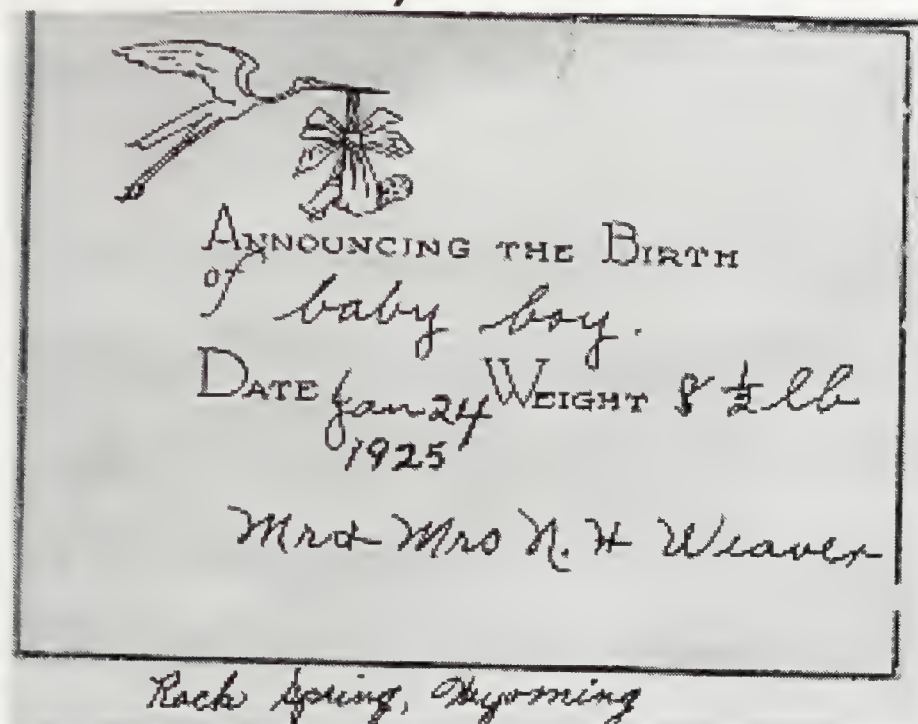 ANNOUNCING THE BIRTH
of baby boy.
DATE Jan 24 WEIGHT 8 ½ lb
1925
Mr & Mrs N. H Weaver
Rock Spring, Wyoming